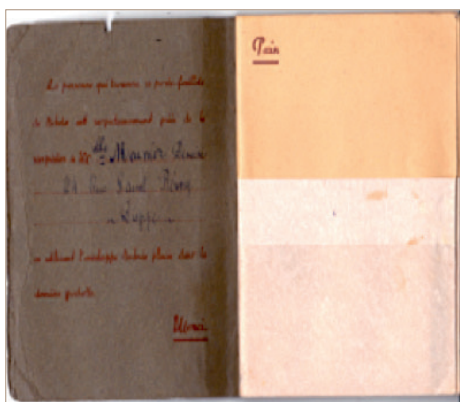 La personne qui trouvera ce porte-feuillets
de tickets est respectueusement priée de le
renvoyer à M elle Denise
24 Rue Saint Rémy
Dieppe
en utilisant l'enveloppe timbrée placée dans la
dernière pochette.
Merci
Pain